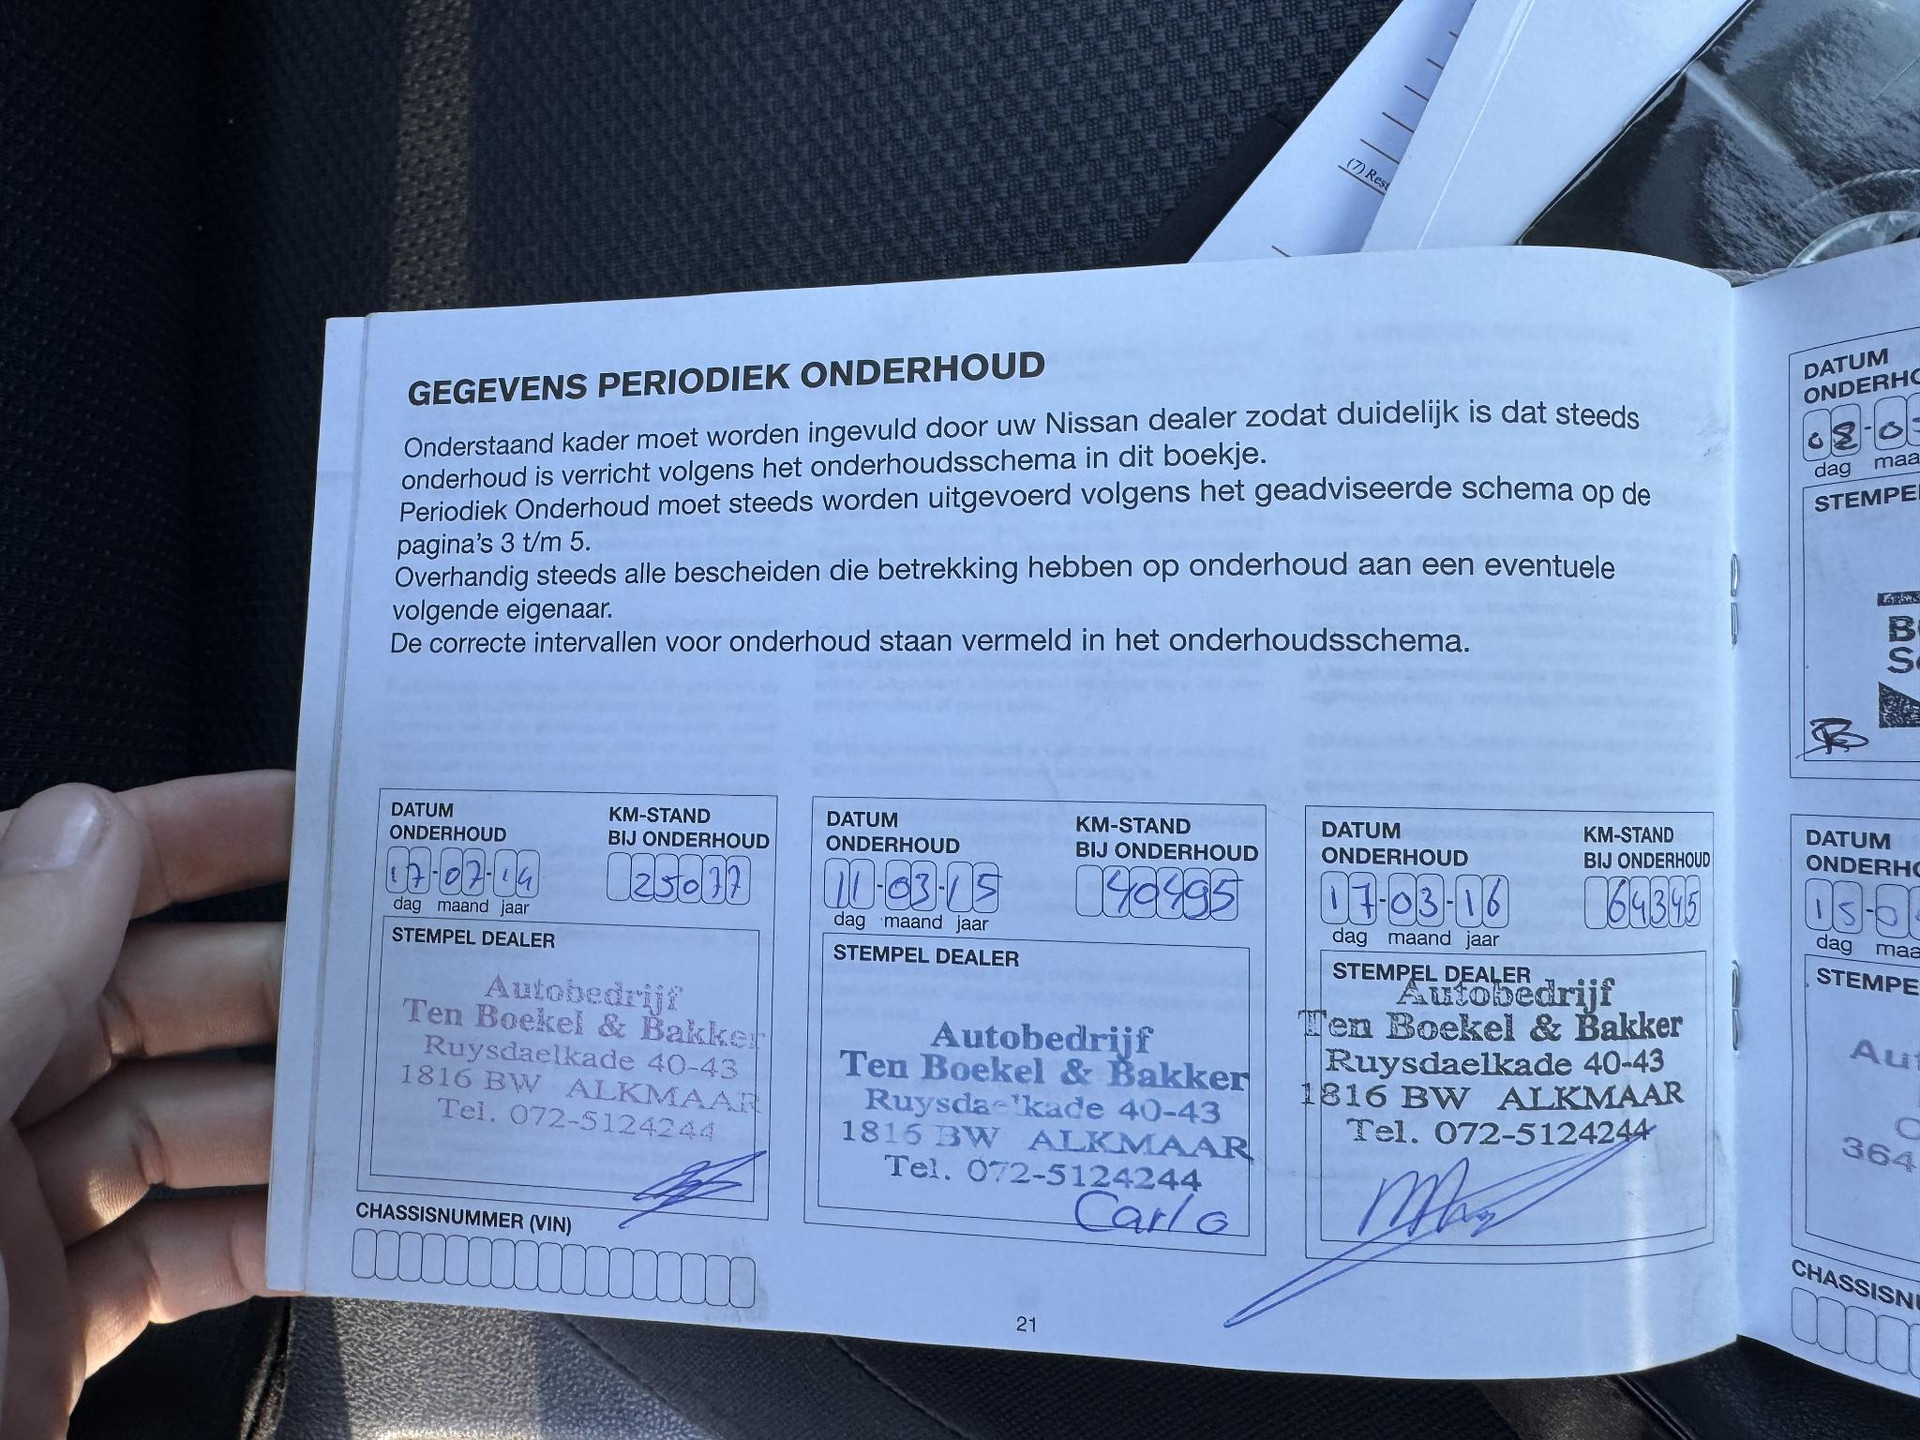 (7) Rest
GEGEVENS PERIODIEK ONDERHOUD
Onderstaand kader moet worden ingevuld door uw Nissan dealer zodat duidelijk is dat steeds
onderhoud is verricht volgens het onderhoudsschema in dit boekje.
Periodiek Onderhoud moet steeds worden uitgevoerd volgens het geadviseerde schema op de
pagina's 3 t/m 5.
Overhandig steeds alle bescheiden die betrekking hebben op onderhoud aan een eventuele
volgende eigenaar.
De correcte intervallen voor onderhoud staan vermeld in het onderhoudsschema.
DATUM
ONDERHOUD
KM-STAND
BIJ ONDERHOUD
17-07-14
25077
dag maand jaar
STEMPEL DEALER
Autobedrijf
Ten Boekel & Bakker
Ruysdaelkade 40-43
1816 BW ALKMAAR
Tel. 072-5124244
CHASSISNUMMER (VIN)
DATUM
ONDERHOUD
KM-STAND
BIJ ONDERHOUD
11-03-15
40495
dag maand jaar
STEMPEL DEALER
Autobedrijf
Ten Boekel & Bakker
Ruysdaelkade 40-43
1816 BW ALKMAAR
Tel. 072-5124244
Carlo
DATUM
ONDERHOUD
KM-STAND
BIJ ONDERHOUD
17-03-16
64345
dag maand jaar
STEMPEL DEALER
Autobedrijf
Ten Boekel & Bakker
Ruysdaelkade 40-43
1816 BW ALKMAAR
Tel. 072-5124244
21
DATUM
ONDERHO
08-0
dag maa
STEMPE
B
S
DATUM
ONDERHO
15-0
dag maa
STEMPE
Aut
364
CHASSISN